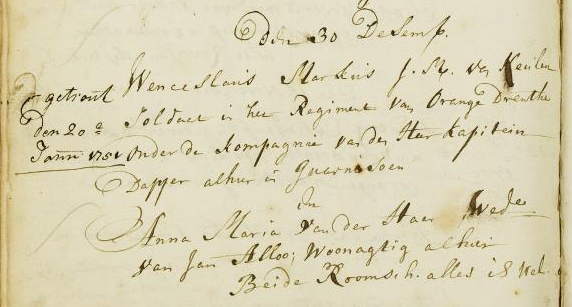 Den 30 Desemb.
getrout Wenceslaus Markus J. M. van Keulen
den 20e Soldaat in het Regiment van Orange Drenthe
Janu: 1751 onder de kompagnie van den Heer Kapitein
Dapper alhier in Guarnisoen
En
Anna Maria van der Haar Wede.
van Jan Alloo; Woonagtig alhier
Beide Roomsch. alles is wel.